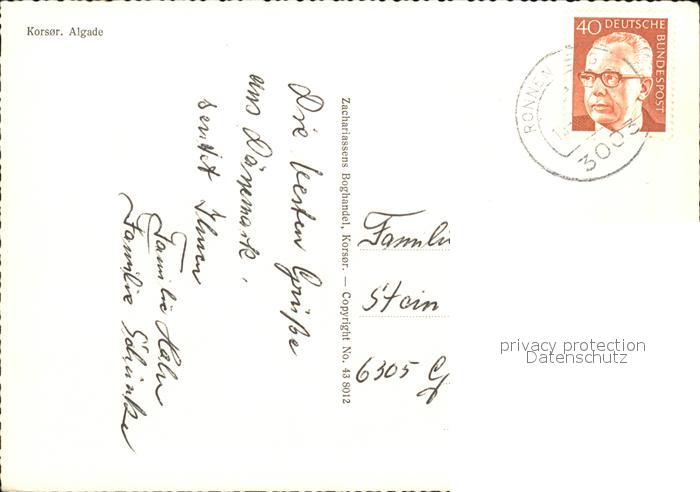 Korsør. Algade
Die besten Grüße
aus Dänemark
sendet Ihnen
Familie Hahn
Familie
Zachariassens Boghandel, Korsør. — Copyright No. 43 8012
40 DEUTSCHE
BUNDESPOST
RONNEN
3003
Famili
Stein
6305 G
privacy protection
Datenschutz